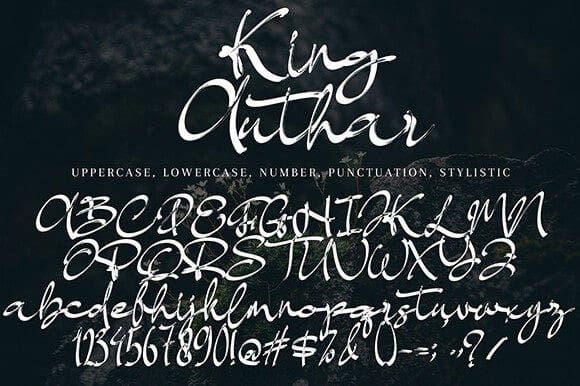 King
Authar
UPPERCASE, LOWERCASE, NUMBER, PUNCTUATION, STYLISTIC
ABCDEFGHIJKLMN
OPQRSTUVWXYZ
abcdefghijklmnopqrstuvwxyz
1234567890!@#$%&()-=;:,.?/